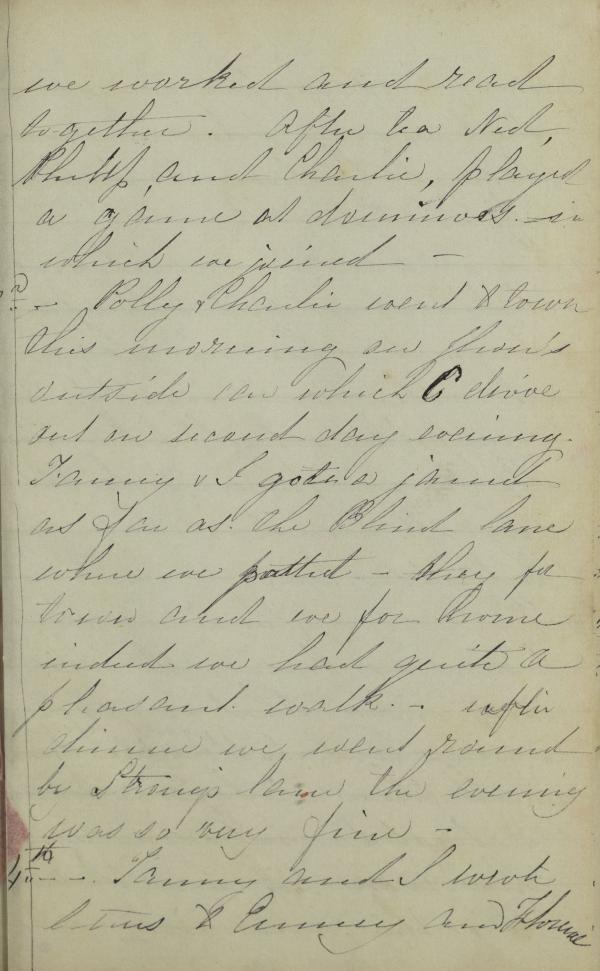 we worked and read
together. After tea Ned,
Philip, and Charlie, played
a game at dominoes - in
which we joined -
Polly & Charlie went to town
this morning on
outside car which C drove
out on second day evening.
Fanny & I got a jaunt
as far as the Blind lane
where we parted - they for
town and we for home
indeed we had quite a
pleasant walk. - after
dinner we went round
by Strong's lane the evening
was so very fine -
4th - - Fanny and I wrote
letters to Emmey and Florrie